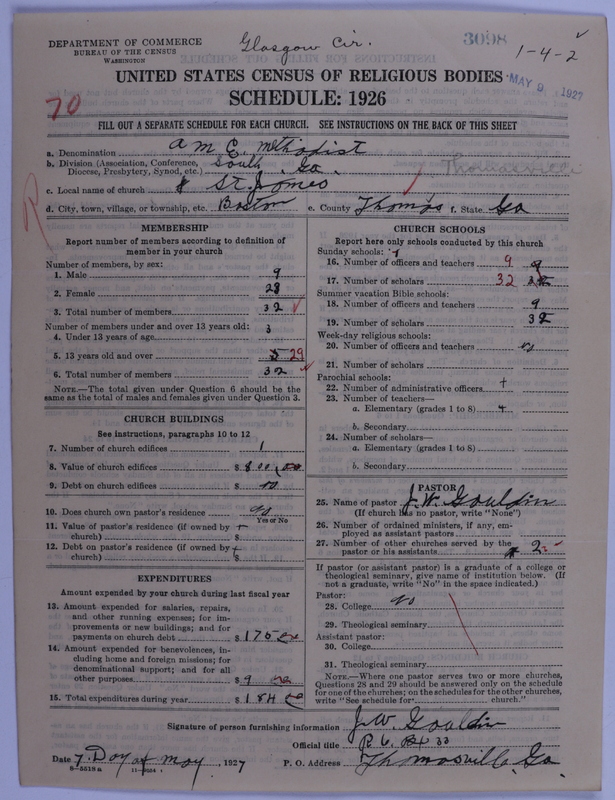 DEPARTMENT OF COMMERCE
BUREAU OF THE CENSUS
WASHINGTON
Glasgow Cir.
3098
1-4-2
UNITED STATES CENSUS OF RELIGIOUS BODIES
MAY 9 1927
SCHEDULE: 1926
70
FILL OUT A SEPARATE SCHEDULE FOR EACH CHURCH. SEE INSTRUCTIONS ON THE BACK OF THIS SHEET
a. Denomination A M E. Methodist
b. Division (Association, Conference, Diocese, Presbytery, Synod, etc.) South Ga.
Thomasville
c. Local name of church St. Jomes
R
d. City, town, village, or township, etc. Boston e. County Thomas f. State Ga
MEMBERSHIP
Report number of members according to definition of member in your church
Number of members, by sex:
1. Male 9
2. Female 23
3. Total number of members 32
Number of members under and over 13 years old:
4. Under 13 years of age 3
5. 13 years old and over 29
6. Total number of members 32
NOTE.—The total given under Question 6 should be the same as the total of males and females given under Question 3.
CHURCH BUILDINGS
See instructions, paragraphs 10 to 12
7. Number of church edifices 1
8. Value of church edifices $ 800.00
9. Debt on church edifices $ no
10. Does church own pastor's residence no
Yes or No
11. Value of pastor's residence (if owned by church) $
12. Debt on pastor's residence (if owned by church) $
EXPENDITURES
Amount expended by your church during last fiscal year
13. Amount expended for salaries, repairs, and other running expenses; for improvements or new buildings; and for payments on church debt $ 175
14. Amount expended for benevolences, including home and foreign missions; for denominational support; and for all other purposes $ 9
15. Total expenditures during year $ 184
CHURCH SCHOOLS
Report here only schools conducted by this church
Sunday schools:
16. Number of officers and teachers 9
17. Number of scholars 32
Summer vacation Bible schools:
18. Number of officers and teachers 9
19. Number of scholars 32
Week-day religious schools:
20. Number of officers and teachers no
21. Number of scholars
Parochial schools:
22. Number of administrative officers
23. Number of teachers—
a. Elementary (grades 1 to 8)
b. Secondary
24. Number of scholars—
a. Elementary (grades 1 to 8)
b. Secondary
PASTOR
25. Name of pastor J. W. Gouldin
(If church has no pastor, write "None")
26. Number of ordained ministers, if any, employed as assistant pastors
27. Number of other churches served by the pastor or his assistants 2
If pastor (or assistant pastor) is a graduate of a college or theological seminary, give name of institution below. (If not a graduate, write "No" in the space indicated.)
Pastor:
28. College No
29. Theological seminary
Assistant pastor:
30. College
31. Theological seminary
NOTE.—Where one pastor serves two or more churches, Questions 28 and 29 should be answered only on the schedule for one of the churches; on the schedules for the other churches, write "See schedule for church."
Signature of person furnishing information J. W. Gouldin
Official title R 6. Bx 33
Date 7. Day of may, 1927 P. O. Address Thomasville, Ga.
8—5518a 11—9024